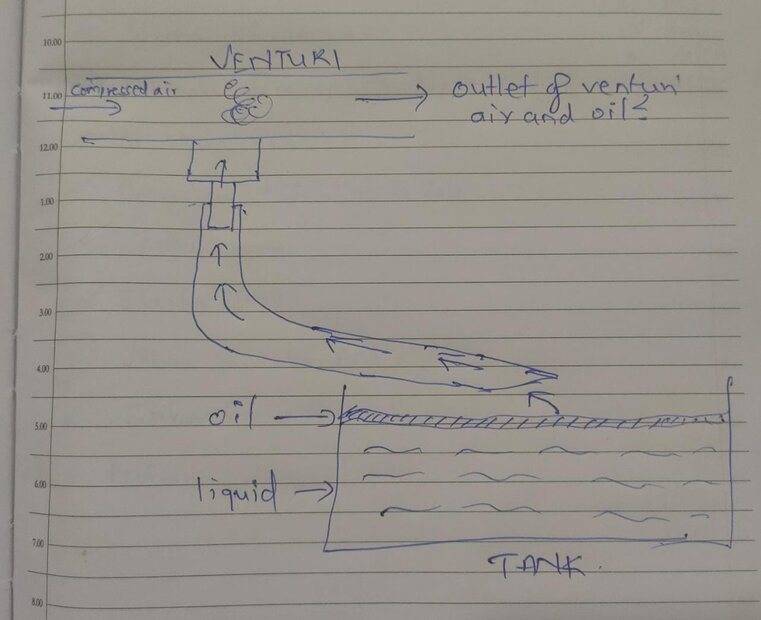 10.00
VENTURI
11.00
compressed air
outlet of venturi
air and oil?
12.00
1.00
2.00
3.00
4.00
oil
5.00
liquid
6.00
7.00
TANK.
8.00